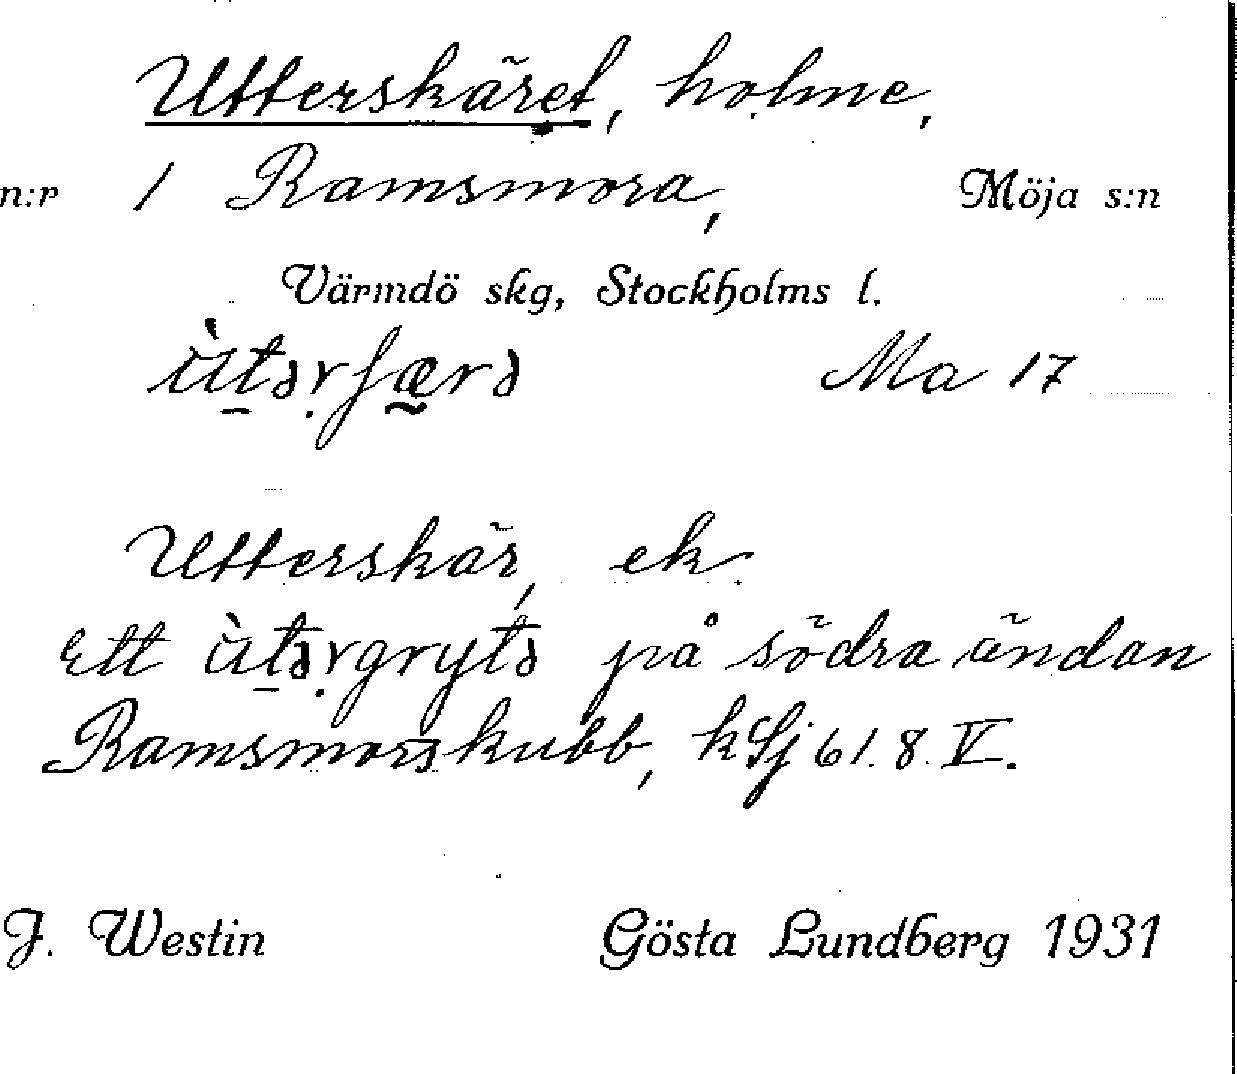 Utterskäret, holme,
n:r 1 Ramsmora, Möja s:n
Värmdö skg, Stockholms l.
ùt̠ər̩ʃæ̰rə Ma 17
Utterskär, ek.
Ett ùt̠ər̩grytə på södra ändan
Ramsmorskubb, kSj 61.8.V.
J. Westin Gösta Lundberg 1931